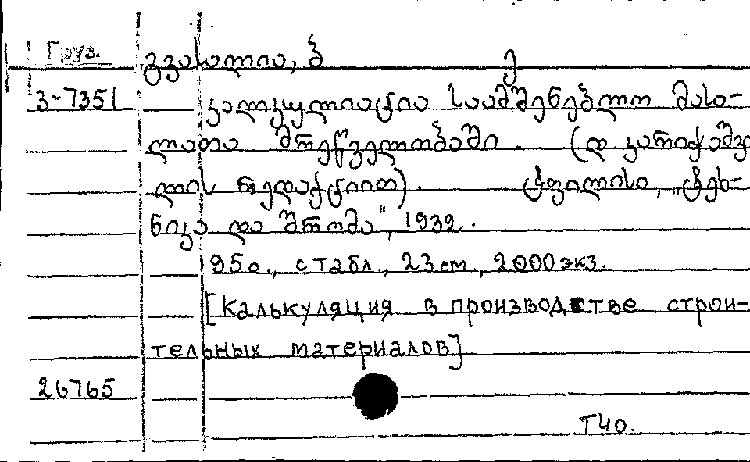 Груз.
გვახალია, ბ ე
3-7351 კალკულიაცია საამშენებლო მასა-
ლათა მრეწველობაში. (დ. კარიჭაშვი
ლის რედაქციით). ტფილისი, „ტექ-
ნიკა და შრომა", 1932.
95с., с табл., 23см., 2000экз.
[Калькуляция в производстве строи-
тельных материалов]
26765
Т40.